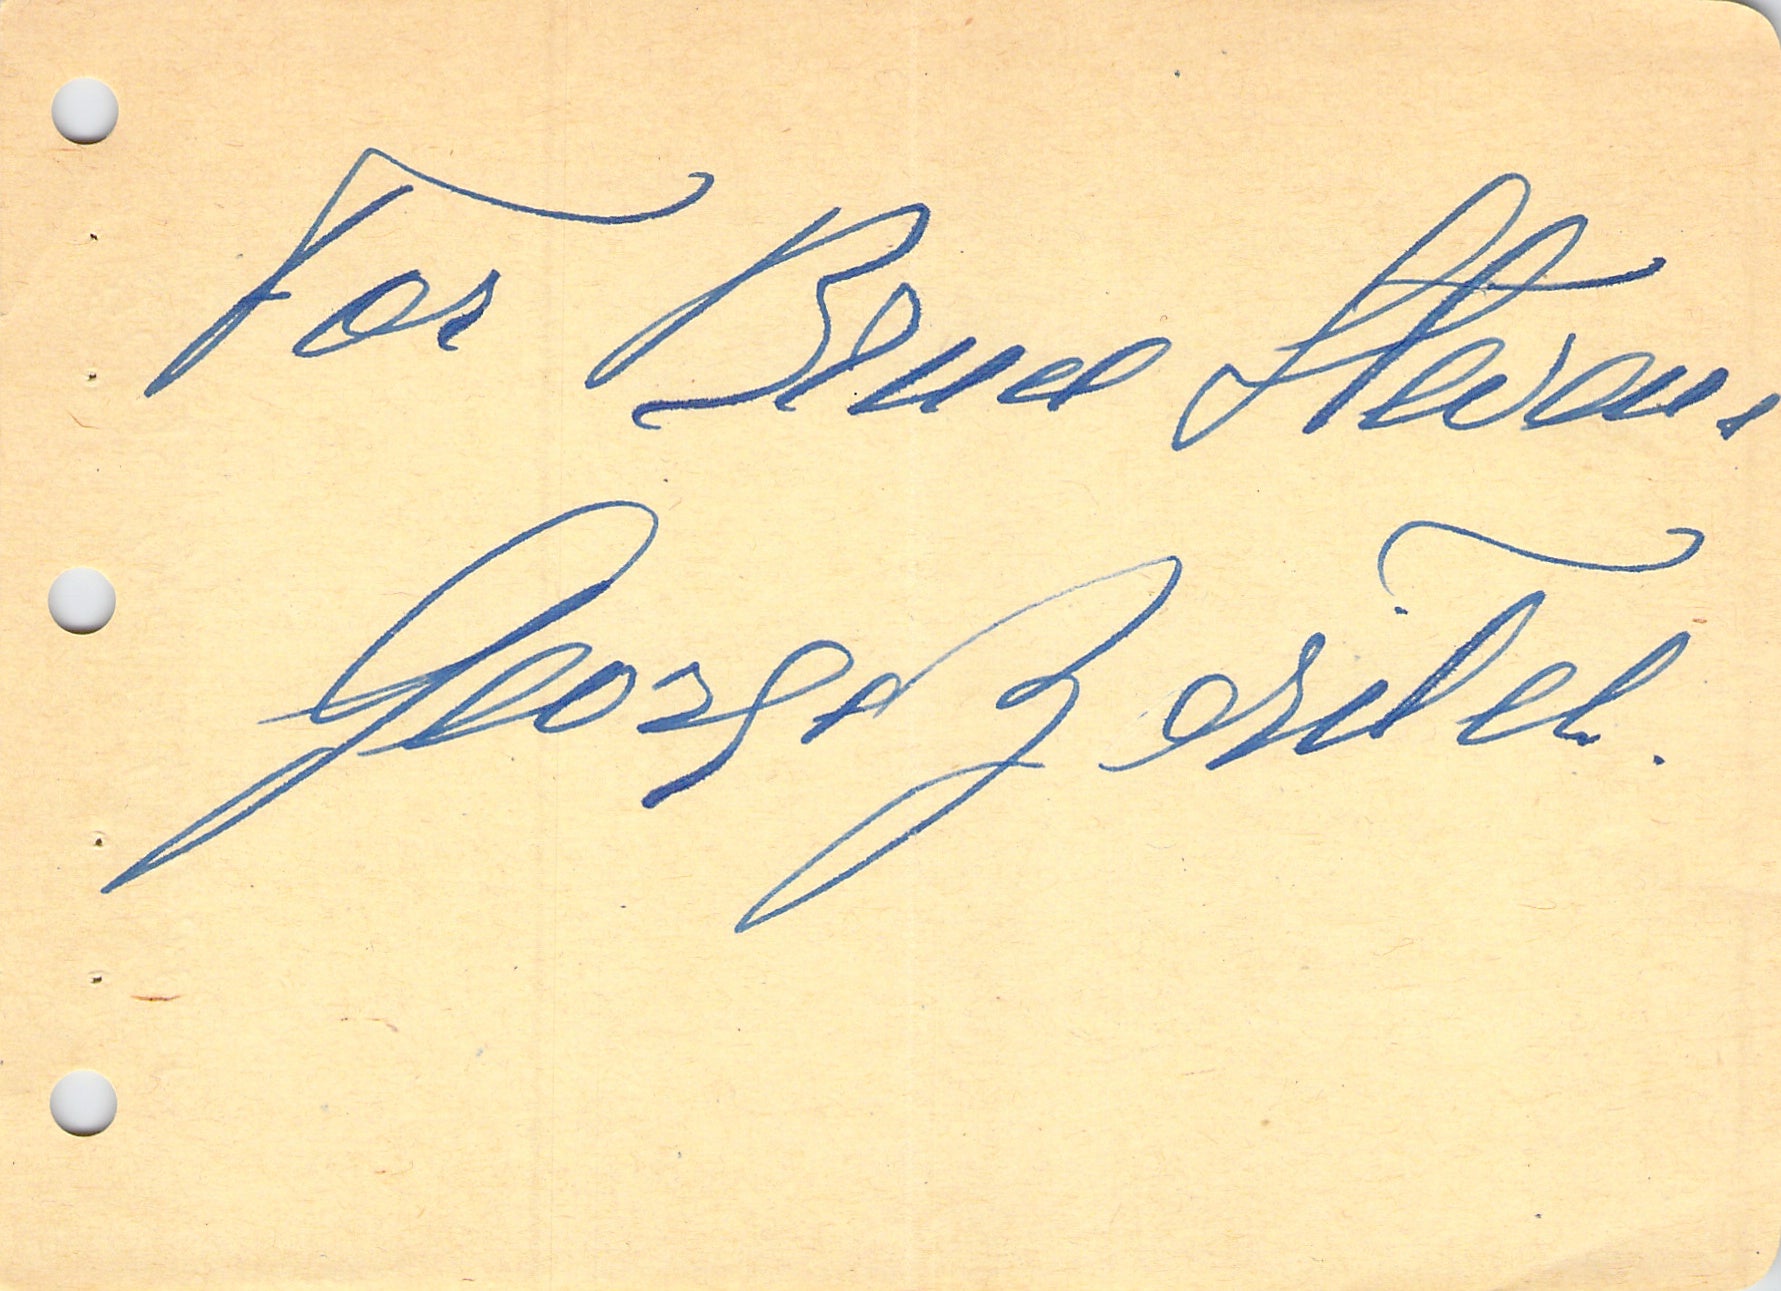 For Bruce Stevens
George Zoritch.